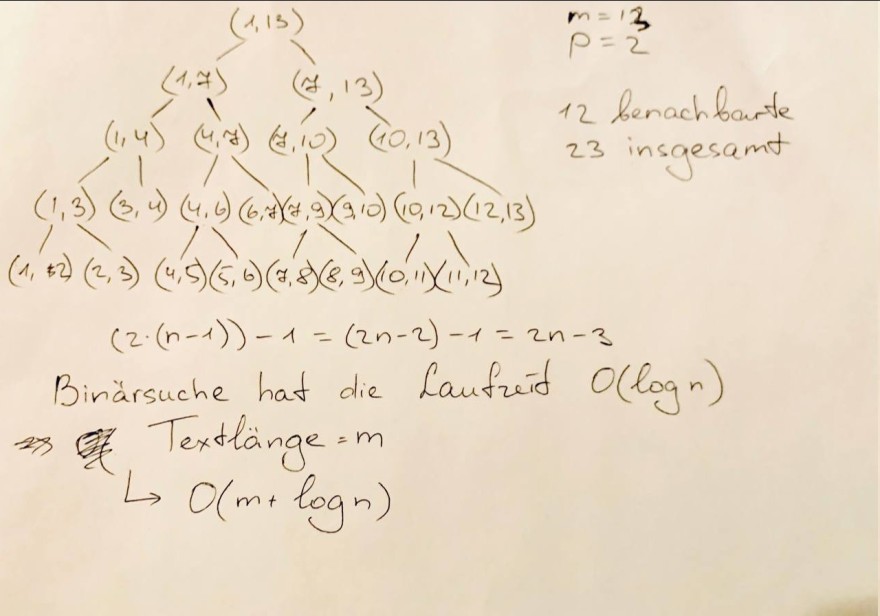 (1,13)
m = 13
p = 2
(1,7) (7,13)
12 benachbarte
(1,4) (4,7) (7,10) (10,13)
23 insgesamt
(1,3) (3,4) (4,6) (6,7) (7,9) (9,10) (10,12) (12,13)
(1,2) (2,3) (4,5) (5,6) (7,8) (8,9) (10,11) (11,12)
(2·(n-1)) - 1 = (2n-2) - 1 = 2n-3
Binärsuche hat die Laufzeit O(log n)
Textlänge = m
↳ O(m + log n)